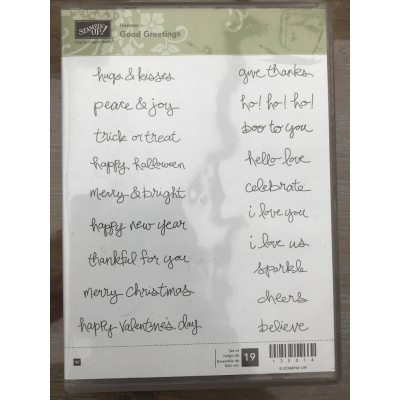 STAMPIN' UP!
Hostess
Good Greetings
hugs & kisses
peace & joy
trick or treat
happy halloween
merry & bright
happy new year
thankful for you
merry christmas
happy valentine's day
give thanks
ho! ho! ho!
boo to you
hello love
celebrate
i love you
i love us
sparkle
cheers
believe
W
Set of
19
© STAMPIN' UP!